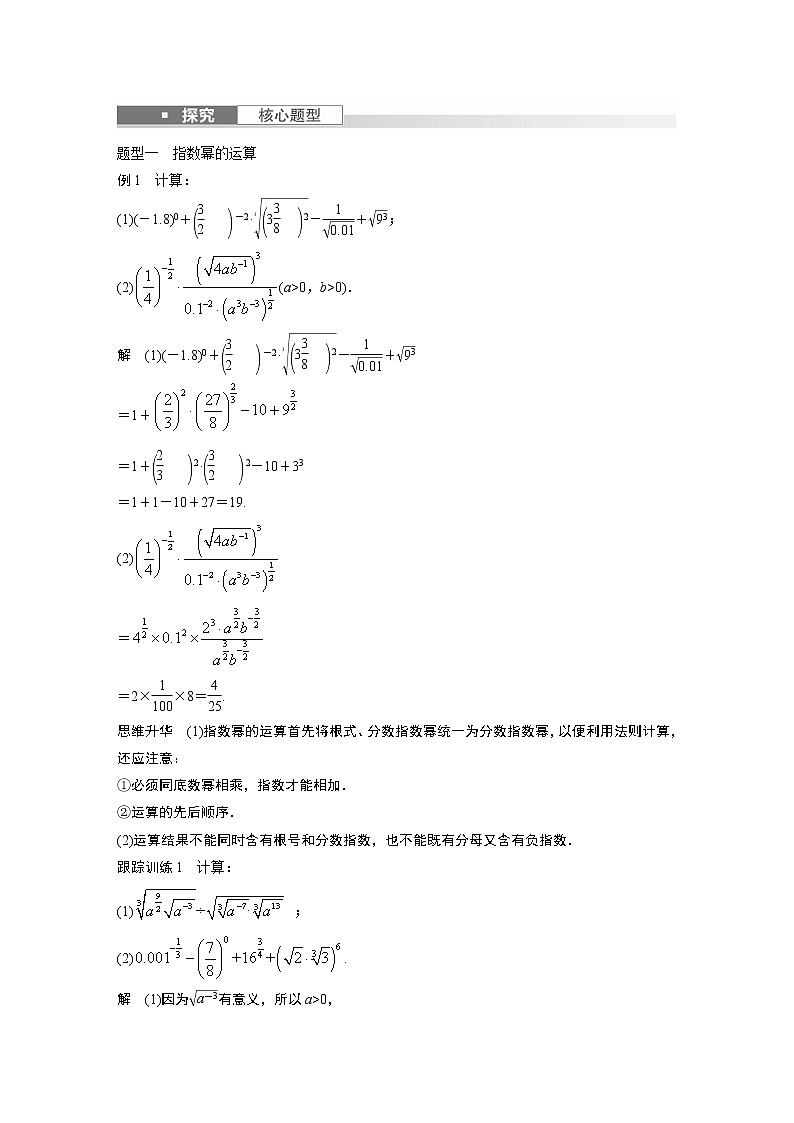 ▪ 探究 核心题型
题型一　指数幂的运算
例1　计算：
(1)(－1.8)⁰＋(3/2)⁻²·∛(3 3/8)²－1/√0.01＋√9³；
(2)(1/4)^(-1/2)·(√(4ab⁻¹))³/(0.1⁻²·(a³b⁻³)^(1/2))(a>0，b>0).
解　(1)(－1.8)⁰＋(3/2)⁻²·∛(3 3/8)²－1/√0.01＋√9³
＝1＋(2/3)²·(27/8)^(2/3)－10＋9^(3/2)
＝1＋(2/3)²·(3/2)²－10＋3³
＝1＋1－10＋27＝19.
(2)(1/4)^(-1/2)·(√(4ab⁻¹))³/(0.1⁻²·(a³b⁻³)^(1/2))
＝4^(1/2)×0.1²×(2³·a^(3/2)b^(-3/2))/(a^(3/2)b^(-3/2))
＝2×1/100×8＝4/25.
思维升华　(1)指数幂的运算首先将根式、分数指数幂统一为分数指数幂，以便利用法则计算，
还应注意：
①必须同底数幂相乘，指数才能相加.
②运算的先后顺序.
(2)运算结果不能同时含有根号和分数指数，也不能既有分母又含有负指数.
跟踪训练1　计算：
(1)∛(a^(9/2)√(a⁻³))÷√(∛(a⁻⁷)·∛(a¹³))　；
(2)0.001^(-1/3)－(7/8)⁰＋16^(3/4)＋(√2·∛3)⁶.
解　(1)因为√(a－3)有意义，所以a>0，